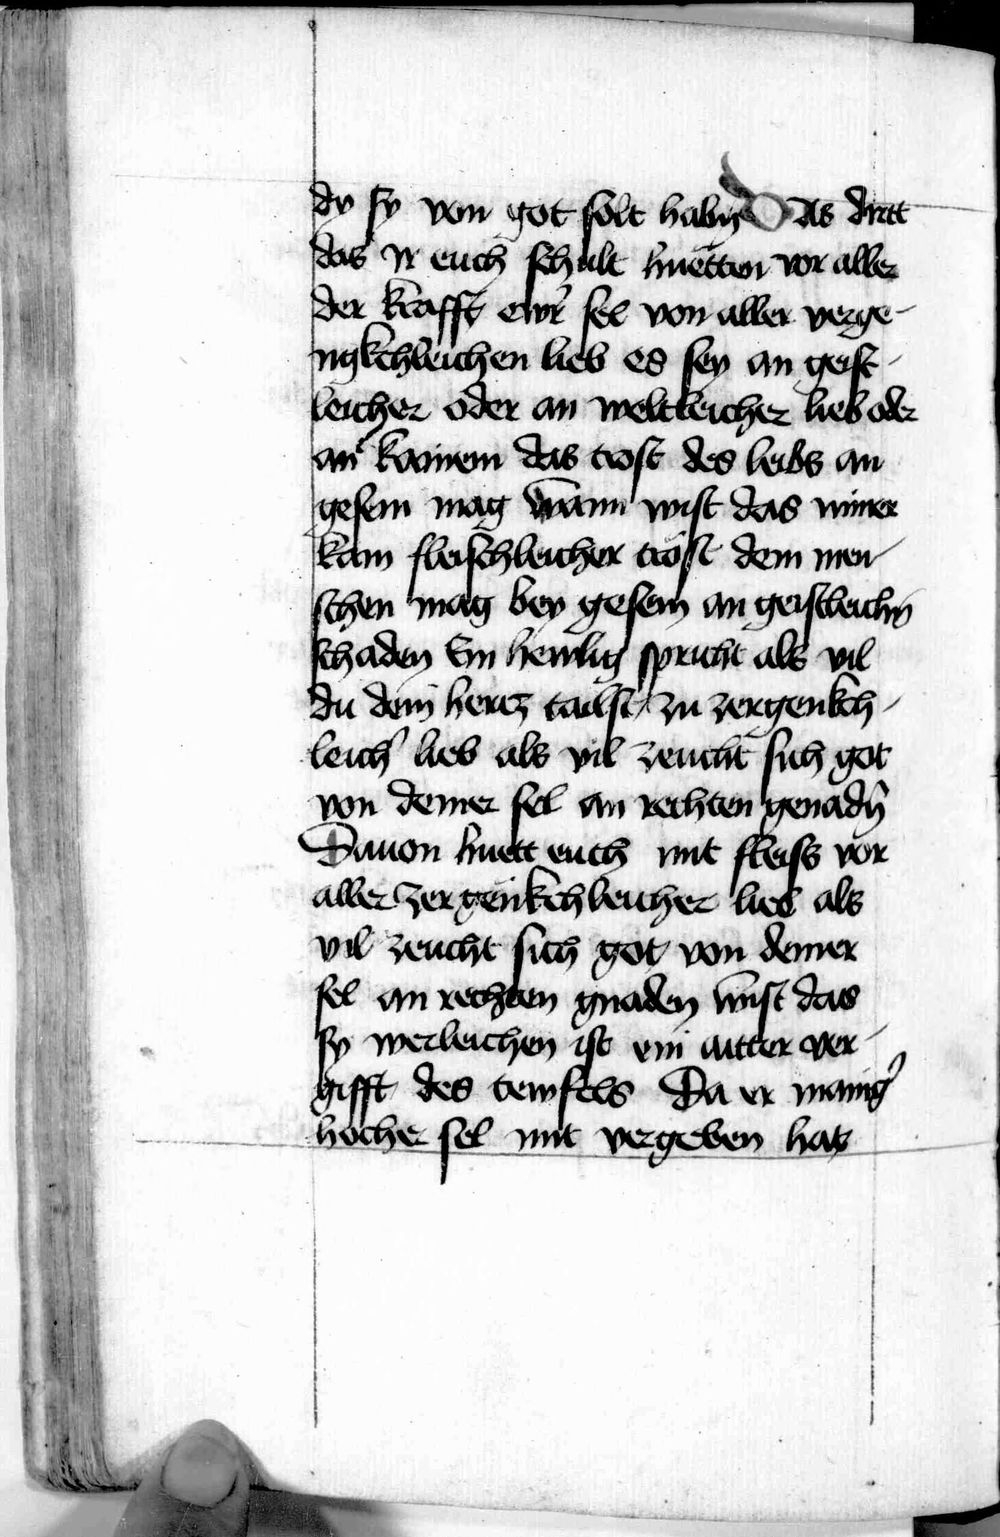 dy sy von got solt habn̄ Das dritt
das ir euch schult huetten vor aller
der krafft ewr̄ sel von aller verge-
ngkchleichen lieb es sey an geist-
leicher oder an weltleicher lieb oder
an kainem das trost des leibs an
gesein mag wann wist das nimer
kain fleischleicher trost dem men-
schen mag bey gesein an geistleichn̄
schaden Ein heilig spricht als vil
du dein hertz tailst zu zergenkch-
leich̄ lieb als vil zeucht sich got
von deiner sel an rechten genadn̄
Dauon huett euch mit fleiss vor
aller zergenkchleicher lieb als
vil zeucht sich got von deiner
sel an rechten gnaden wist das
sy werleichen ist ein aitter ver-
gifft des tewfels Da er maniḡ
hocher sel mit vergeben hat